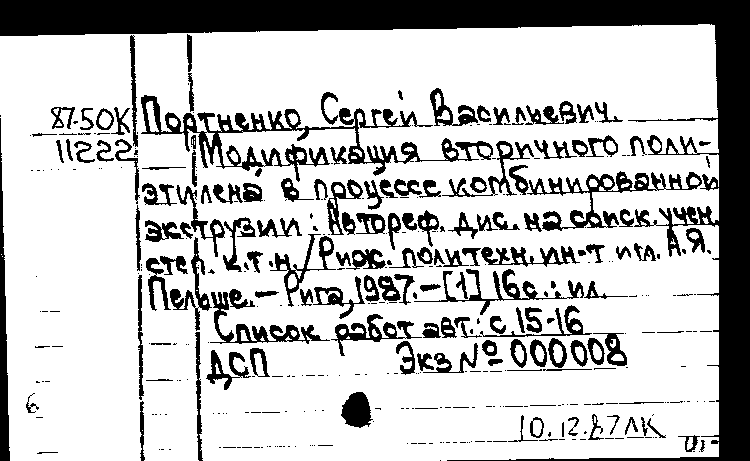 87-50К Портненко, Сергей Васильевич.
11222 Модификация вторичного поли-
этилена в процессе комбинированной
экструзии: Автореф. дис. на соиск. учен.
степ. к.т.н./Риж. политехн. ин-т им. А.Я.
Пельше.—Рига, 1987.—[1], 16с.: ил.
Список работ авт.: с. 15-16
ДСП Экз № 000008
6
10.12.87 ЛК